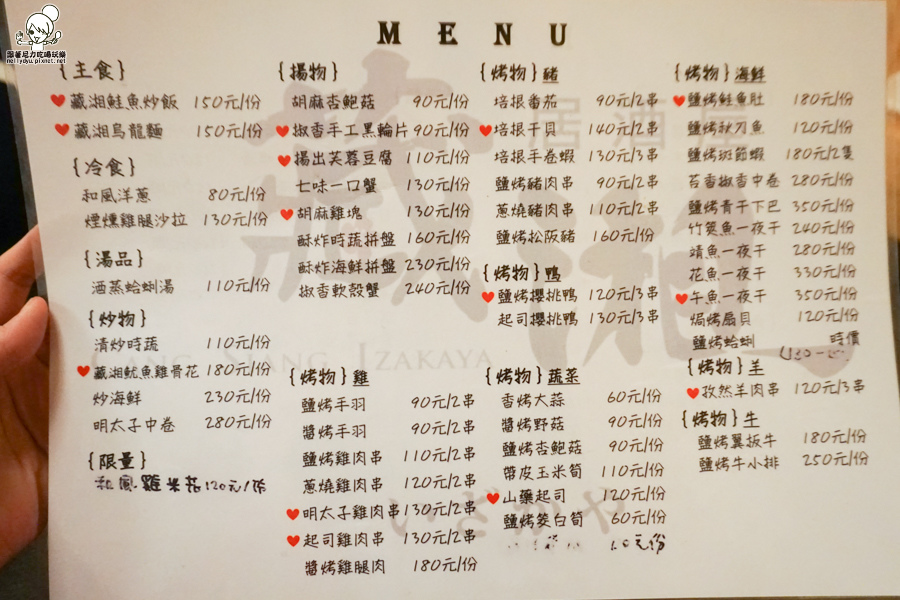 跟著尼力吃喝玩樂
nellydyu.pixnet.net
MENU
{主食}
藏湘鮭魚炒飯 150元/份
藏湘烏龍麵 150元/份
{冷食}
和風洋蔥 80元/份
煙燻雞腿沙拉 130元/份
{湯品}
酒蒸蛤蜊湯 110元/份
{炒物}
清炒時蔬 110元/份
藏湘魷魚雞骨花 180元/份
炒海鮮 230元/份
明太子中卷 280元/份
{限量}
和風 120元/份
{揚物}
胡麻杏鮑菇 90元/份
椒香手工黑輪片 90元/份
揚出芙蓉豆腐 110元/份
七味一口蟹 130元/份
胡麻雞塊 130元/份
酥炸時蔬拼盤 160元/份
酥炸海鮮拼盤 230元/份
椒香軟殼蟹 240元/份
{烤物}雞
鹽烤手羽 90元/2串
醬烤手羽 90元/2串
鹽烤雞肉串 110元/2串
蔥燒雞肉串 120元/2串
明太子雞肉串 130元/2串
起司雞肉串 130元/2串
醬烤雞腿肉 180元/份
{烤物}豬
培根番茄 90元/2串
培根干貝 140元/2串
培根手卷蝦 130元/3串
鹽烤豬肉串 90元/2串
蔥燒豬肉串 110元/2串
鹽烤松阪豬 160元/份
{烤物}鴨
鹽烤櫻桃鴨 120元/3串
起司櫻桃鴨 130元/3串
{烤物}蔬菜
香烤大蒜 60元/份
醬烤野菇 90元/份
鹽烤杏鮑菇 90元/份
帶皮玉米筍 110元/份
山藥起司 120元/份
鹽烤茭白筍 60元/份
{烤物}海鮮
鹽烤鮭魚肚 180元/份
鹽烤秋刀魚 120元/份
鹽烤斑節蝦 180元/2隻
苔香椒香中卷 280元/份
鹽烤青干下巴 350元/份
竹筴魚一夜干 240元/份
鯖魚一夜干 280元/份
花魚一夜干 330元/份
午魚一夜干 350元/份
焗烤扇貝 120元/份
鹽烤蛤蜊 時價
{烤物}羊
孜然羊肉串 120元/3串
{烤物}牛
鹽烤翼板牛 180元/份
鹽烤牛小排 250元/份
藏湘
居酒屋
CANG SIANG IZAKAYA
いざかや